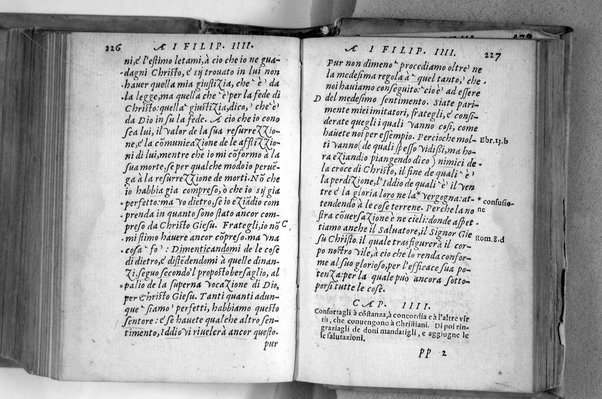 226 Æ I FILIP. IIII.
ni, è l'estimo letami, à cio che io ne gua-
dagni Christo, è sy trouato in lui non
hauer quella mia giustizia, che è da
la legge, ma quella che è per la fede di
Christo: quella giustizia, dico, che è
da Dio in su la fede. A cio che io cono
sca lui, il valor de la sua resurrezzio-
ne, è la comunicazione de le afflizzio-
ni di lui, mentre che io mi cōformo à la
sua morte, se per qualche modo io peruē-
ga à la resurrezzione de morti. Nō che
io habbia gia compreso, ò che io sy gia
perfetto: ma vo dietro, se io eziādio com-
prenda in quanto sono stato ancor com-
preso da Christo Giesu. Frategli, io nō C
mi stimo hauere ancor cōpreso. ma vna
cosa fo: Dimenticandomi de le cose
di dietro, è distēdendomi à quelle dinan-
zi, seguo secondo'l proposto bersaglio, al
palio de la superna vocazione di Dio,
per Christo Giesu. Tanti quanti adun-
que siamo perfetti, habbiamo questo
sentore: è se hauete qualche altro sen-
timento, Iddio vi riuelerà ancor questo.
pur
Æ I FILIP. IIII. 227
Pur non dimeno procediamo oltre ne
la medesima regola à quel tanto, che
noi hauiamo conseguito: cio è ad essere
D del medesimo sentimento. Siate pari-
mente miei imitatori, frategli, è consi-
derate quegli i quali vanno cosi, come
hauete noi per essempio. Percioche mol- Ebr.13.b
ti vanno (de quali spesso vidissi, ma ho-
ra eziandio piangendo dico) nimici de
la croce di Christo, il fine de quali è
la perdizione, l'Iddio de quali è il ven
tre è la gloria loro ne la * vergogna: at- * confusio
tendendo à le cose terrene. Perche la no ne
stra cōuersazione è ne cieli: donde aspet-
tiamo anche il Saluatore, il Signor Gie Rom.8.d
su Christo. il quale trasfigurerà il cor-
po nostro vile, à cio che lo renda confor-
me al suo glorioso, per l'efficace sua po-
tenza: per la quale può ancora sotto-
porsi tutte le cose.
CAP. IIII.
Confortagli à cōstanza, à concordia è à l'altre vir
tù, che conuengono à Christiani. Di poi rin-
graziagli de doni mandatigli, è aggiugne le
le salutazioni.
PP 2